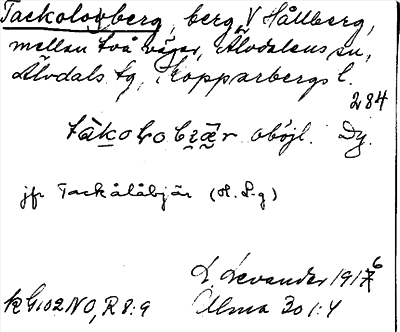 Tackolovberg, berg V Hållberg,
mellan två vägar, Älvdalens sn,
Älvdals tg, Kopparbergs l.
284
tàkoƚobɛär oböjl. Dy.
jfr Tackålåbjär (H. L-g)
L. Levander 1916
KG102NO, R 8:9 Alma Bo 1:4